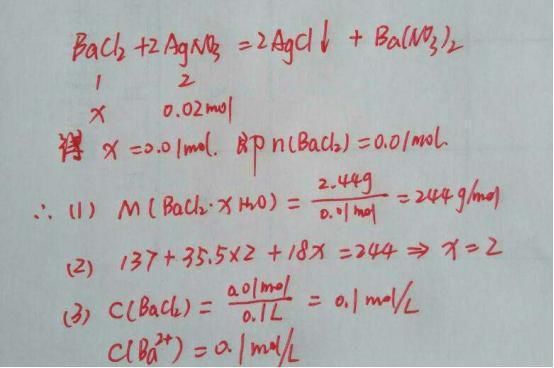 BaCl₂ + 2AgNO₃ = 2AgCl↓ + Ba(NO₃)₂
1 2
x 0.02mol
得 x = 0.01mol. 即 n(BaCl₂) = 0.01mol.
∴ (1) M(BaCl₂·xH₂O) = 2.44g / 0.01mol = 244g/mol
(2) 137 + 35.5×2 + 18x = 244 ⇒ x = 2
(3) C(BaCl₂) = 0.01mol / 0.1L = 0.1mol/L
C(Ba²⁺) = 0.1mol/L